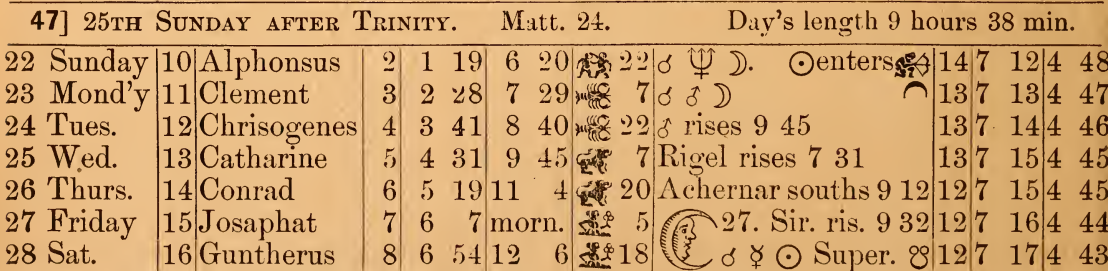 47] 25TH SUNDAY AFTER TRINITY. Matt. 24. Day's length 9 hours 38 min.
22 Sunday 10 Alphonsus 2 1 19 6 20 22 ☌ ♆ ☽. ☉enters ♐ 14 7 12 4 48
23 Mond'y 11 Clement 3 2 28 7 29 7 ☌ ♂ ☽ 13 7 13 4 47
24 Tues. 12 Chrisogenes 4 3 41 8 40 22 ♂ rises 9 45 13 7 14 4 46
25 Wed. 13 Catharine 5 4 31 9 45 7 Rigel rises 7 31 13 7 15 4 45
26 Thurs. 14 Conrad 6 5 19 11 4 20 Achernar souths 9 12 12 7 15 4 45
27 Friday 15 Josaphat 7 6 7 morn. 5 27. Sir. ris. 9 32 12 7 16 4 44
28 Sat. 16 Guntherus 8 6 54 12 6 18 ☌ ☿ ☉ Super. ☋ 12 7 17 4 43